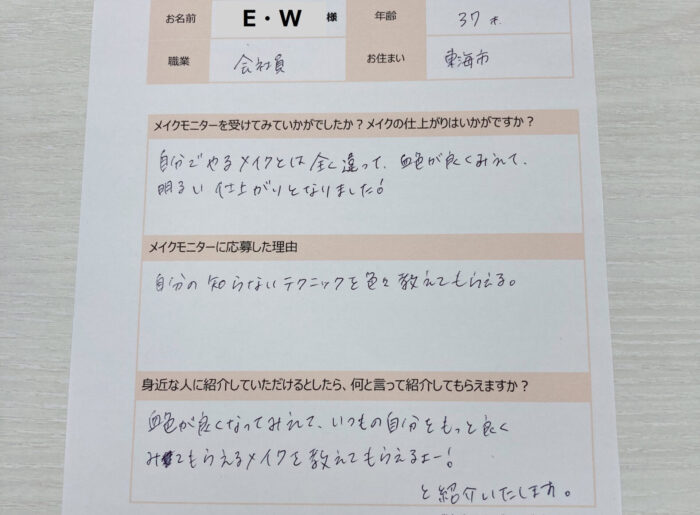 お名前 E・W 様 年齢 37才
職業 会社員 お住まい 東海市
メイクモニターを受けてみていかがでしたか？メイクの仕上がりはいかがですか？
自分でやるメイクとは全く違って、血色が良くみえて、
明るい仕上がりとなりました!
メイクモニターに応募した理由
自分の知らないテクニックを色々教えてもらえる。
身近な人に紹介していただけるとしたら、何と言って紹介してもらえますか？
血色が良くなってみえて、いつもの自分をもっと良く
みてもらえるメイクを教えてもらえるよー!
と紹介いたします。